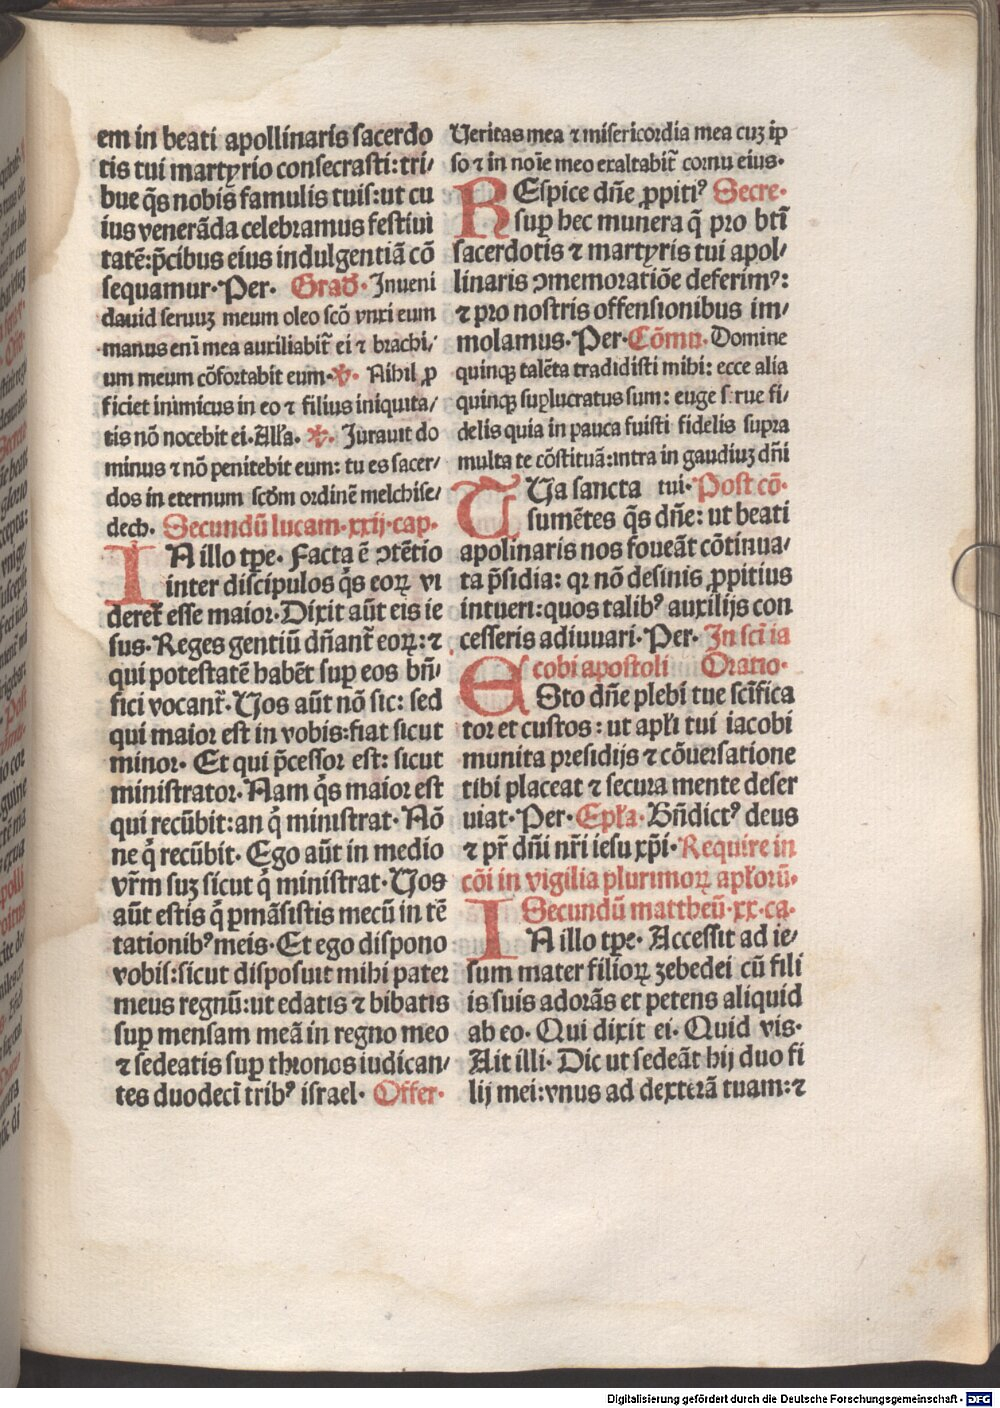 em in beati apollinaris sacerdo
tis tui martyrio consecrasti: tri/
bue q̃s nobis famulis tuis: ut cu
ius venerãda celebramus festiui
tatẽ: p̃cibus eius indulgentiã cõ
sequamur· Per· Grad̃· Inueni
dauid seruuʒ meum oleo scõ vnxi eum
manus eni mea auxiliabit̃ ei ⁊ brachi/
um meum cõfortabit eum· ℣· Nihil ꝓ
ficiet inimicus in eo ⁊ filius iniquita/
tis nõ nocebit ei· Alła· ℣· Iurauit do
minus ⁊ nõ penitebit eum: tu es sacer/
dos in eternum scd̃m ordinẽ melchise/
dech· Secundũ lucam· xxij· cap·
IN illo tp̃e· Facta ẽ ↄtẽtio
inter discipulos q̃s eoꝝ vi
deret̃ esse maior· Dixit aũt eis ie
sus· Reges gentiũ dñant̃ eoꝝ: ⁊
qui potestatẽ habẽt suꝑ eos bñ/
fici vocant̃· Vos aũt nõ sic: sed
qui maior est in vobis: fiat sicut
minor· Et qui p̃cessor est: sicut
ministrator· Nam q̃s maior est
qui recũbit: an q̃ ministrat· Nõ
ne q̃ recũbit· Ego aũt in medio
vr̃m suʒ sicut q̃ ministrat· Vos
aũt estis q̃ ꝑmãsistis mecũ in tẽ
tationibꝰ meis· Et ego dispono
vobis: sicut disposuit mihi pater
meus regnũ: ut edatis ⁊ bibatis
suꝑ mensam meã in regno meo
⁊ sedeatis suꝑ thronos iudican/
tes duodeci tribꝰ israel· Offer·
Veritas mea ⁊ misericordia mea cuʒ ip
so ⁊ in noĩe meo exaltabit̃ cornu eius·
REspice dñe ꝓpitiꝰ Secre·
suꝑ hec munera q̃ pro bti
sacerdotis ⁊ martyris tui apol/
linaris ↄmemoratiõe deferimꝰ:
⁊ pro nostris offensionibus im/
molamus· Per· Cõmu· Domine
quinqʒ talẽta tradidisti mihi: ecce alia
quinqʒ suꝑlucratus sum: euge serue fi/
delis quia in pauca fuisti fidelis supra
multa te cõstituã: intra in gaudiuʒ dñi
TUa sancta tui· Post cõ·
sumẽtes q̃s dñe: ut beati
apolinaris nos foueãt cõtinua/
ta p̃sidia: qꝛ nõ desinis ꝓpitius
intueri: quos talibꝰ auxilijs con
cesseris adiuuari· Per· In sci ia
cobi apostoli Oratio·
ESto dñe plebi tue scĩfica
tor et custos: ut apłi tui iacobi
munita presidijs ⁊ cõuersatione
tibi placeat ⁊ secura mente deser
uiat· Per· Epła· Bñdictꝰ deus
⁊ pr̃ dñi nr̃i iesu xp̃i· Require in
cõi in vigilia plurimoꝝ apłorũ·
Secundũ mattheũ· xx· ca·
IN illo tp̃e· Accessit ad ie/
sum mater filioꝝ zebedei cũ fili
is suis adorãs et petens aliquid
ab eo· Qui dixit ei· Quid vis·
Ait illi· Dic ut sedeãt hij duo fi
lij mei: vnus ad dexterã tuam: ⁊
Digitalisierung gefördert durch die Deutsche Forschungsgemeinschaft - DFG